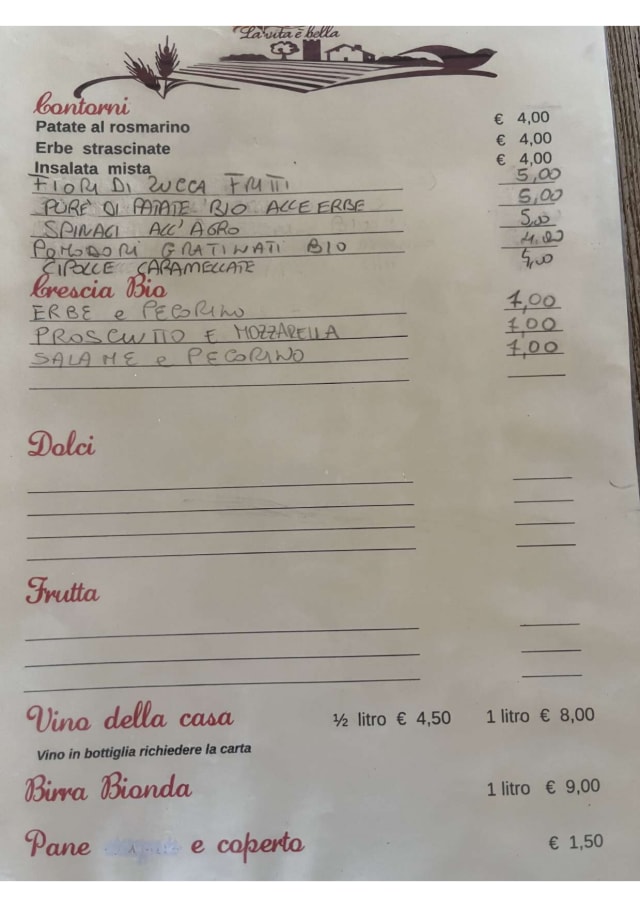 La vita è bella
Contorni
Patate al rosmarino € 4,00
Erbe strascinate € 4,00
Insalata mista € 4,00
FIORI DI ZUCCA FRITTI 5,00
PURE' DI PATATE BIO ALLE ERBE 5,00
SPINACI ALL'AGRO 5,00
POMODORI GRATINATI BIO 4,00
CIPOLLE CARAMELLATE
Crescia Bio
ERBE e PECORINO 7,00
PROSCIUTTO E MOZZARELLA 7,00
SALAME e PECORINO 7,00
Dolci
Frutta
Vino della casa ½ litro € 4,50 1 litro € 8,00
Vino in bottiglia richiedere la carta
Birra Bionda 1 litro € 9,00
Pane e coperto € 1,50